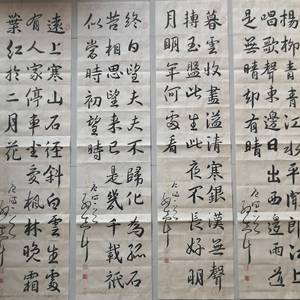 楊柳青青江水平聞郎江上
唱歌聲東邊日出西邊雨道
是無晴
暮雲收盡溢清寒銀漢無聲
轉玉盤此生此夜不長好明
月明年何處看
終日望夫夫不歸化為孤石
苦相思望來已是幾千載祇
似當時初望時
遠上寒山石徑斜白雲生處
有人家停車坐愛楓林晚霜
葉紅於二月花